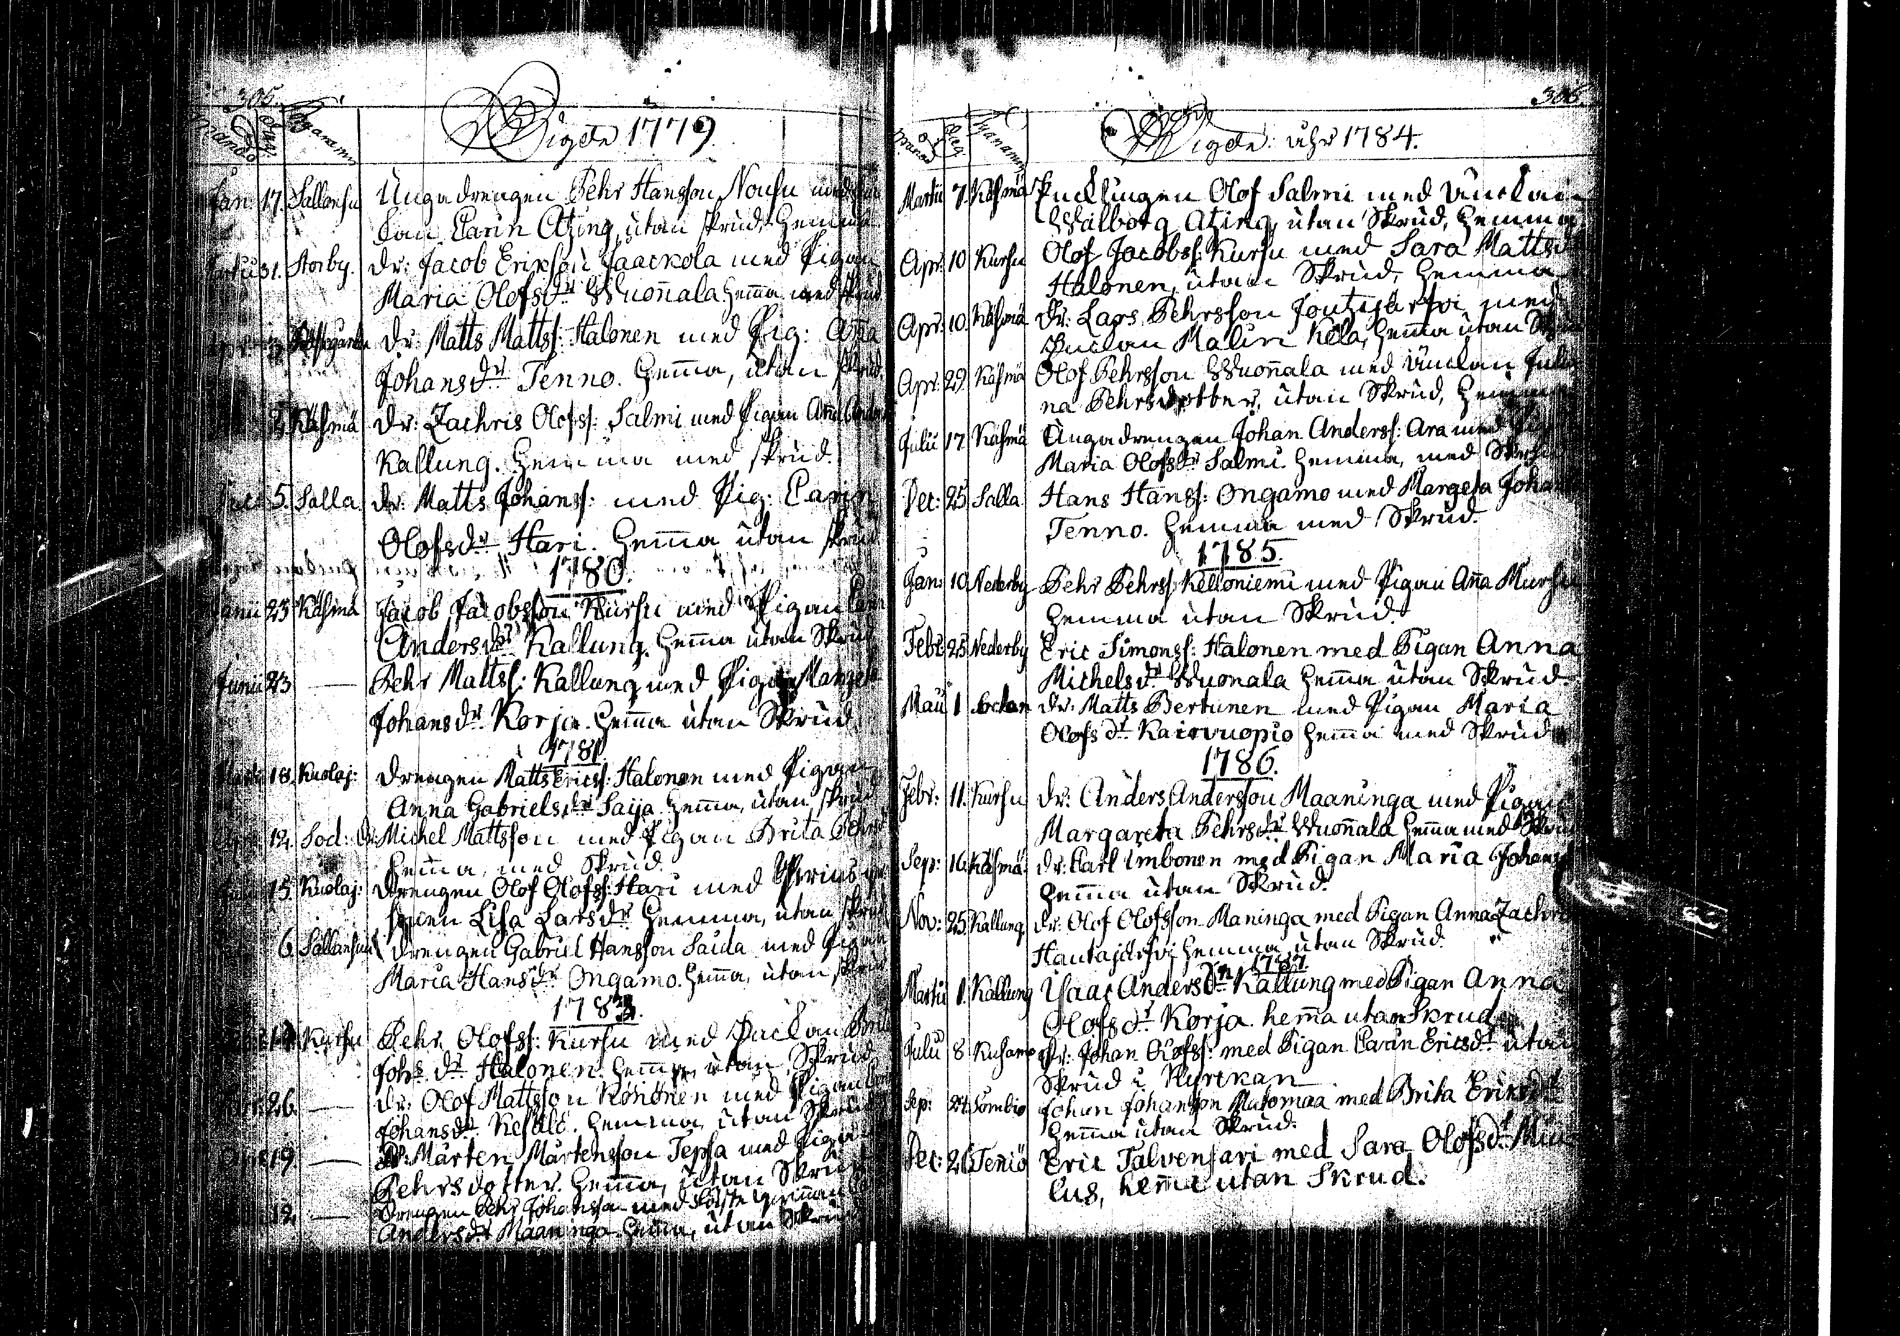 305.
Månad
Dag
Byanamn
Wigde 1779
Jan: 17. Sallansu Ungadrengen Pehr Hansson Nousu med
Carin Atzing, utan skrud, hemma
31. Storby. dr: Jacob Eriksson Jaackola med Pigan
Maria Olofsdr Wuoñala hem̃a med skrud
dr: Matts Mattss: Halonen med Pig: Anna
Johansdr Tenno. hem̃a, utan skrud.
2. Käsmä dr: Zachris Olofss: Salmi med Pigan Anna Anders
Kallung. hemma med skrud.
5. Salla dr: Matts Johanss: med Pig: Carin
Olofsdr Hari. hem̃a utan skrud
1780.
Janu 23 Käsmä Jacob Jacobsson Kursu med Pigan Carin
Andersdr Kallung. hem̃a utan Skrud
Junii 23 — Pehr Mattss: Kallung med Pigan Margeta
Johansdr Korja. hem̃a utan Skrud
1781
18. Kuolaj: drengen Matts Ericss: Halonen med Pigan
Anna Gabrielsdr Saija. hem̃a, utan skrud
12. Sod: dr: Michel Mattsson med Pigan Brita Pehrsd
hem̃a, med Skrud.
15. Kuolaj: drengen Olof Olofss: Hari med
Lisa Larsdr hemma, utan skrud
6. Sallansuu drengen Gabriel Hansson Saida med Pigan
Maria Hansdr Ongamo. hem̃a, utan skrud
1783.
Kursu Pehr Olofss: Kursu med Änckan Brita
Johs dr Halonen. hemma, utan Skrud
26. — dr: Olof Mattsson Könönen med Pigan
Johansdr Kesäle. hemma, utan Skrud
19. — dr: Mårten Mårtensson Tepsa med Pigan
Pehrsdotter. hem̃a, utan Skrud
12. — drengen Pehr Johansson med
Andersdr Maaninga. hem̃a, utan Skrud
306.
Månad
Dag
Byanamn
Wigde: uhr 1784.
Martii 7. Käsmä Änclingen Olof Salmi med Anckan
Walborg Atzing, utan Skrud, hemma
Apr: 10 Kursu Olof Jacobss: Kursu med Sara Mattsdr
Halonen, utan Skrud, hemma
Apr: 10. Käsmä dr: Lars Pehrsson Joutzijärfvi med
Änckan Malin Kela, hem̃a utan Skrud
Apr: 29. Käsmä Olof Pehrsson Wuoñala med Änckan Julia
na Pehrsdotter, utan Skrud, hemma
Julii 17 Käsmä Ungadrengen Johan Anderss: Ara med Pigan
Maria Olofsdr Salmi. hemma, med Skrud
Dec: 25 Salla Hans Hanss: Ongamo med Margeta Johans
Tenno. hemma med Skrud.
1785.
Jan: 10 Nederby Pehr Pehrss: Kelloniemi med Pigan Aña Mursu
hemma utan Skrud.
Febr: 25 Nederby Eric Simonss: Halonen med Pigan Anna
Michelsdr Wuonala hem̃a utan Skrud
Maii 1 Sockan dr: Matts Pertunen med Pigan Maria
Olofsdr Kairvuopio hem̃a med Skrud
1786.
Febr: 11. Kursu dr: Anders Andersson Maaninga med Pigan
Margareta Pehrsdr Wuoñala hem̃a med Skrud
Sep: 16. Käsmä dr: Carl Imbonen med Pigan Maria Johansd
hem̃a utan Skrud.
Nov: 25. Kallung dr: Olof Olofsson Maninga med Pigan Anna Zachri
Hautajärfvi hemma utan Skrud.
1787
Martii 1. Kallung Isaac Andersson Kallung med Pigan Anna
Olofsdr Korja. hem̃a utan Skrud
Julii 8 Kusamo dr: Johan Olofss: med Pigan Carin Ericsdr utan
Skrud i Kyrckan
Sep: 24. Sombio Johan Johansson Matomaa med Brita Ericsdr
hem̃a utan Skrud.
Dec: 26. Teniö Eric Talvensari med Sara Olofsdr
lus, hem̃a utan Skrud.